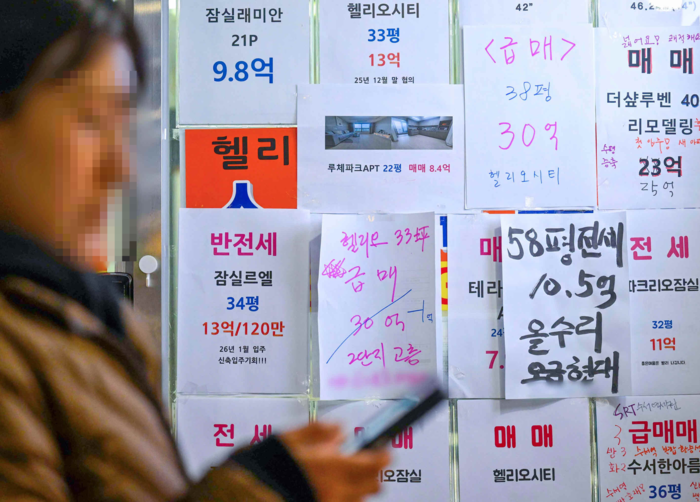 잠실래미안
21P
9.8억
헬리오시티
33평
13억
25년 12월 말 협의
42"
루체파크APT 22평 매매 8.4억
<급매>
38평
30억
헬리오시티
매매
더샵루벤 40
리모델링
23억
25억
헬리
반전세
잠실르엘
34평
13억/120만
26년 1월 입주
신축입주기회!!!
헬리오 33평
급매
30억
2단지 고층
매
테라
24
7.
58평전세
10.5억
올수리
오금현대
전세
파크리오잠실
32평
11억
전세
매
리오잠실
매매
헬리오시티
SRT
급매매
수서한아름
36평